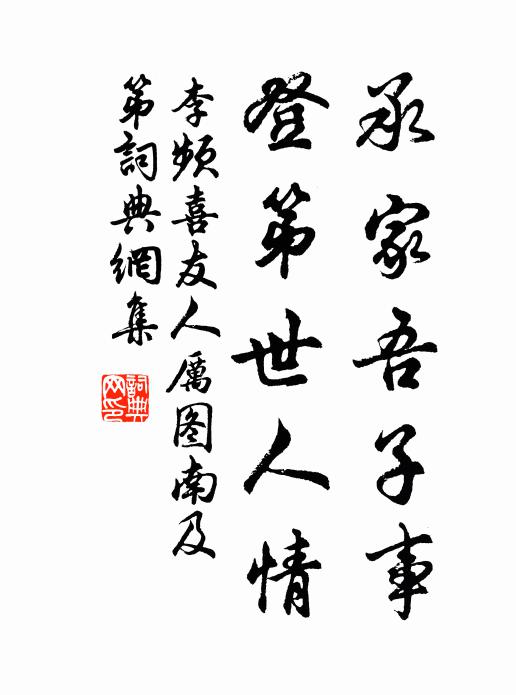 承家吾子事
登第世人情
李频喜友人厲图南及
第詞典網集
詞典
网印